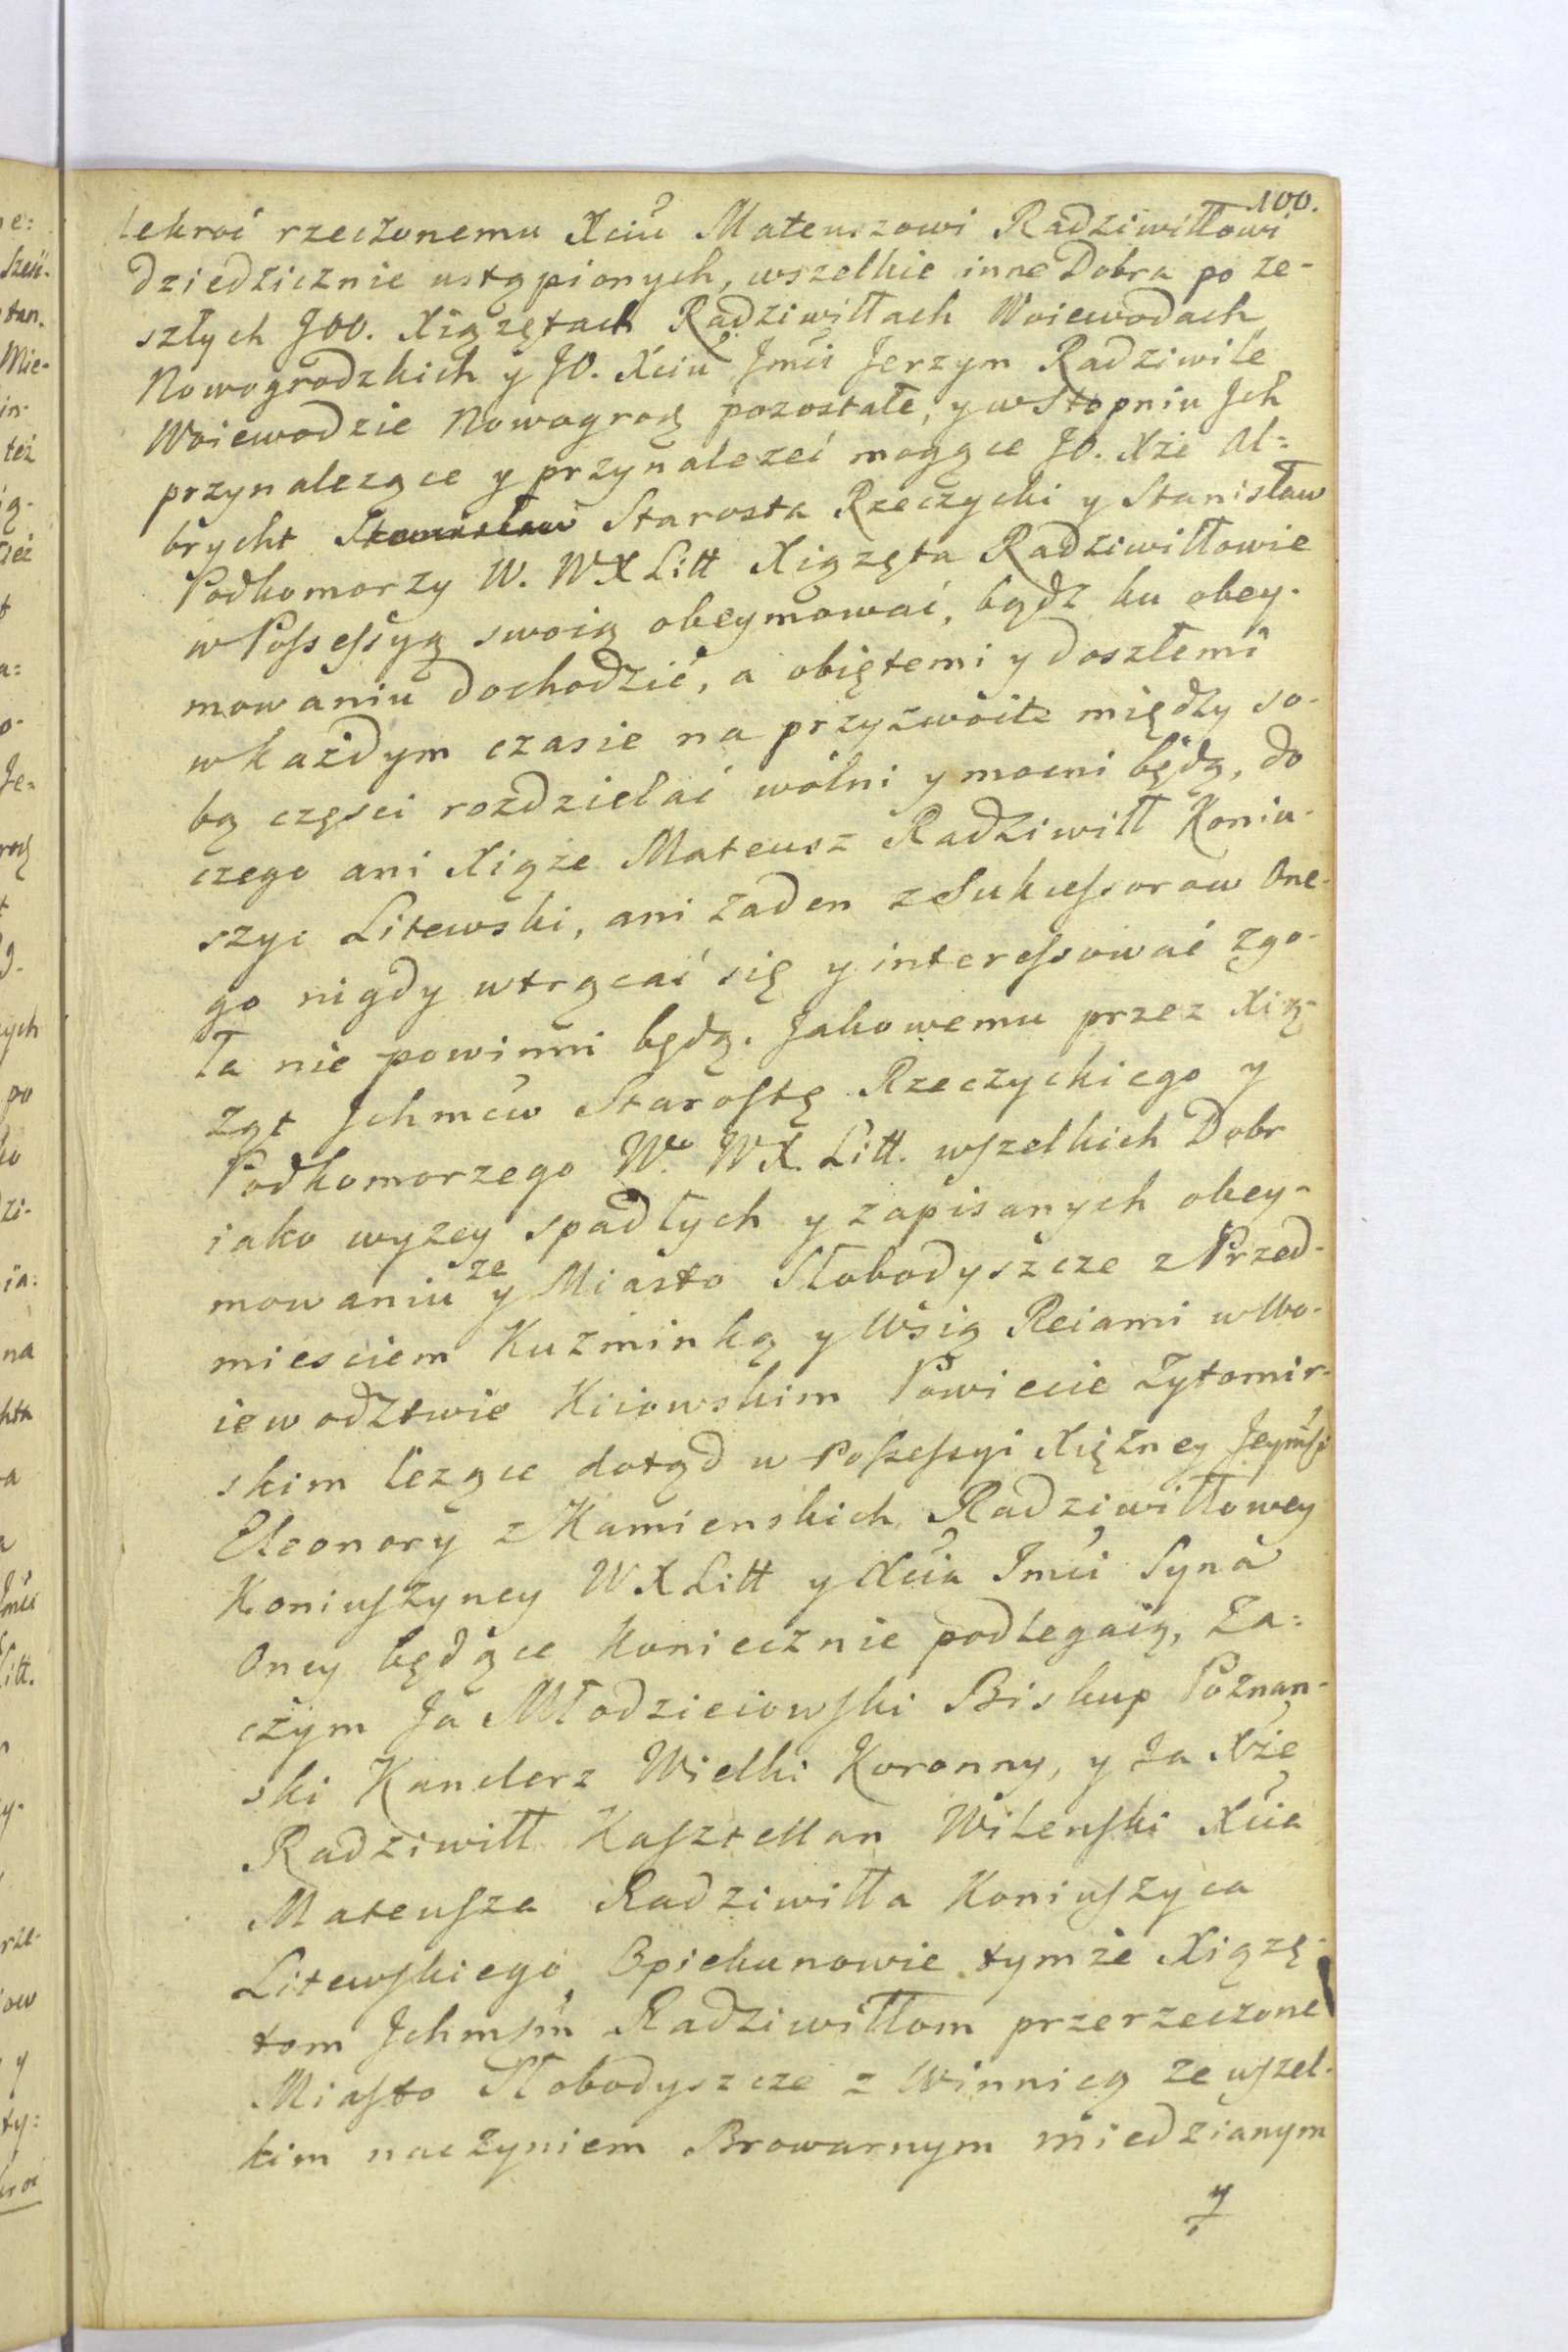 100.
lekroć rzeczonemu Xciu Mateuszowi Radziwiłłowi
dziedzicznie ustąpionych, wszelkie inne Dobra po ze-
szłych JOO. Xiążętach Radziwiłłach Woiewodach
Nowogrodzkich y JO. Xciu Jmci Jerzym Radziwile
Woiewodzie Nowogrodz pozostałe, y w Stopniu Jch
przynalezące y przynalezeć mogące JO. Xże Al=
brycht Starosta Rzeczycki y Stanisław
Podkomorzy W. WXLitt Xiązęta Radziwiłłowie
w Possessyą swoią obeymować, bądz ku obey-
mowaniu dochodzić, a obiętemi y doszłemi
w każdym czasie na przyzwoite między so-
bą części rozdzielać wolni y mocni będą, do
czego ani Xiąże Mateusz Radziwiłł Koniu-
szyc Litewski, ani żaden z Sukcessorow One-
go nigdy wtrącać się y interessować zgo-
ła nie powinni będą. Jakowemu przez Xią-
żąt Jchmciw Starostę Rzeczyckiego y
Podkomorzego W. WX. Litt. wszelkich Dobr
iako wyzey spadłych y zapisanych obey-
mowaniu ze y Miasto Słobodyszcze z Przed-
miesciem Kuzminką y Wsią Reiami w Wo-
iewodztwie Kiiowskim Powiecie Zytomir-
skim lezące dotąd w Possessyi Xiężney Jeymsi
Eleonory z Kamienskich Radziwiłłowey
Koniuszyney WXLitt y Xcia Jmci Syna
Oney będące koniecznie podlegaią, Za=
czym Ja Młodzieiowski Biskup Poznan-
ski Kanclerz Wielki Koronny, y Ja Xże
Radziwiłł Kasztellan Wilenski Xcia
Mateusza Radziwiłła Koniuszyca
Litewskiego Opiekunowie tymże Xiązę-
tom Jchmsm Radziwiłłom przerzeczone
Miasto Słobodyszcze z Winnicą ze wszel-
kim naczyniem Browarnym miedzianym
y